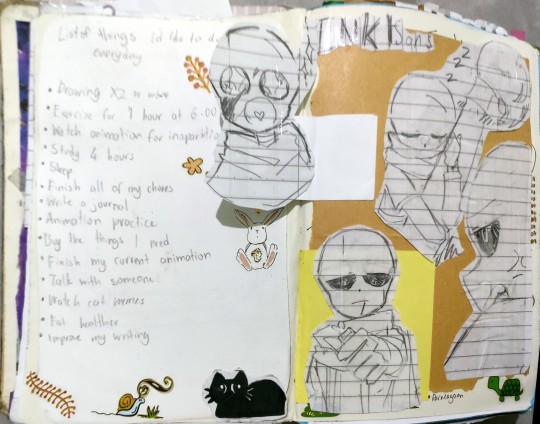 List of things i'd like to do
everyday
• Drawing X2 or more
• Exercise for 1 hour at 6.00
• Watch animation for
• Study 4 hours
• Sleep
• Finish all of my chores
• Write a journal
• Animation practice
• Buy the things I need
• Finish my current animation
• Talk with someone
• Watch cat memes
• Eat healthier
• Improve my writing
INK! Sans
z
z
z